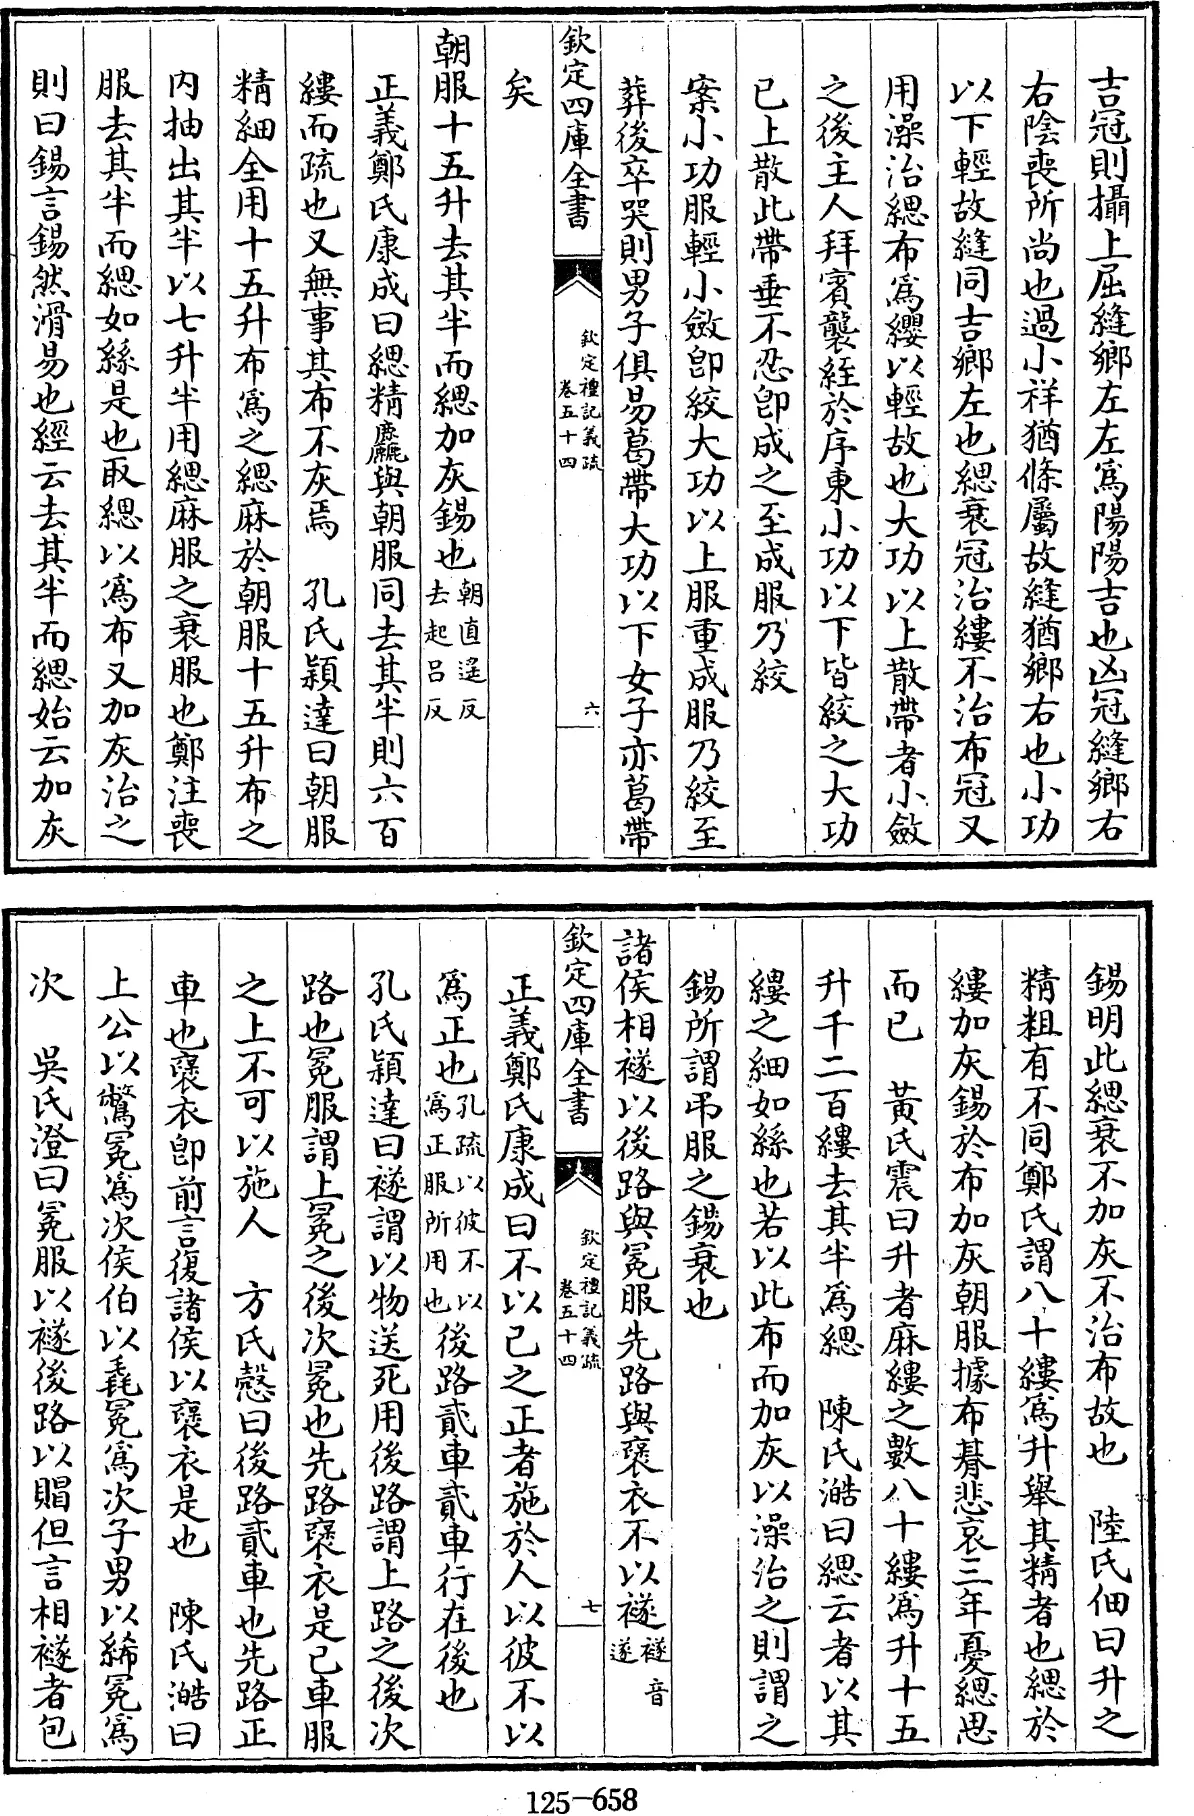 吉冠則攝上屈縫鄉左左為陽陽吉也凶冠縫鄉右
右陰喪所尚也過小祥猶條屬故縫猶鄉右也小功
以下輕故縫同吉鄉左也緦衰冠治縷不治布冠又
用澡治緦布為纓以輕故也大功以上散帶者小斂
之後主人拜賓襲絰於序東小功以下皆絞之大功
已上散此帶垂不忍卽成之至成服乃絞
案小功服輕小斂卽絞大功以上服重成服乃絞至
葬後卒哭則男子俱易葛帶大功以下女子亦葛帶
欽定四庫全書
欽定禮記義疏
卷五十四
六
矣
朝服十五升去其半而緦加灰錫也朝直遙反
去起呂反
正義鄭氏康成曰緦精麤與朝服同去其半則六百
縷而疏也又無事其布不灰焉 孔氏穎達曰朝服
精細全用十五升布為之緦麻於朝服十五升布之
內抽出其半以七升半用緦麻服之衰服也鄭注喪
服去其半而緦如絲是也取緦以為布又加灰治之
則曰錫言錫然滑易也經云去其半而緦始云加灰
錫明此緦衰不加灰不治布故也 陸氏佃曰升之
精粗有不同鄭氏謂八十縷為升舉其精者也緦於
縷加灰錫於布加灰朝服據布朞悲哀三年憂緦思
而已 黃氏震曰升者麻縷之數八十縷為升十五
升千二百縷去其半為緦 陳氏澔曰緦云者以其
縷之細如絲也若以此布而加灰以澡治之則謂之
錫所謂弔服之錫衰也
諸侯相襚以後路與冕服先路與褒衣不以襚襚音
遂
欽定四庫全書
欽定禮記義疏
卷五十四
七
正義鄭氏康成曰不以己之正者施於人以彼不以
為正也孔疏以彼不以
為正服所用也後路貳車貳車行在後也
孔氏穎達曰襚謂以物送死用後路謂上路之後次
路也冕服謂上冕之後次冕也先路褒衣是己車服
之上不可以施人 方氏慤曰後路貳車也先路正
車也褒衣卽前言復諸侯以褒衣是也 陳氏澔曰
上公以鷩冕為次侯伯以毳冕為次子男以絺冕為
次 吳氏澄曰冕服以襚後路以賵但言相襚者包
125-658